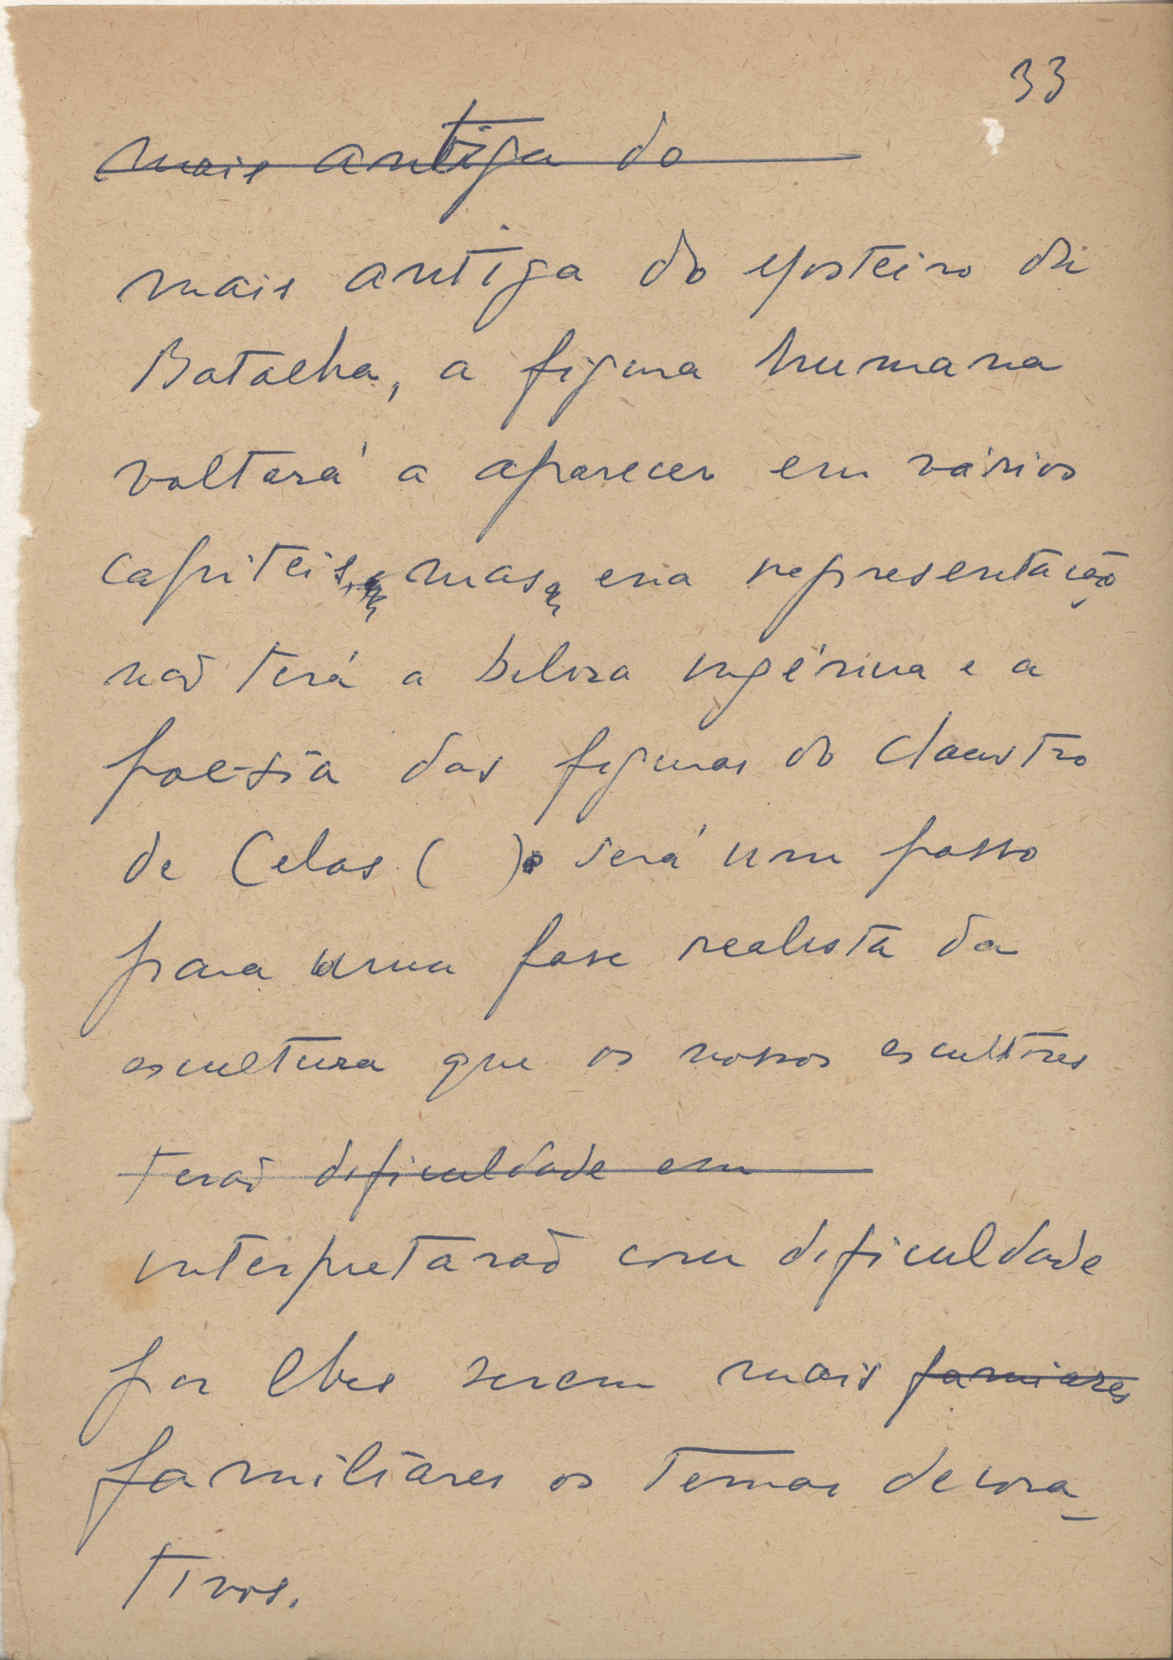 33
mais antiga do
mais antiga do Mosteiro da
Batalha, a figura humana
voltará a aparecer em vários
capiteis, mas, essa representação
não terá a beleza ingénua e a
poesia das figuras do Claustro
de Celas ( ). será um passo
para uma fase realista da
escultura que os nossos escultores
terão dificuldade em
interpretarão com dificuldade
por lhes serem mais famiares
familiares os temas decora-
tivos.